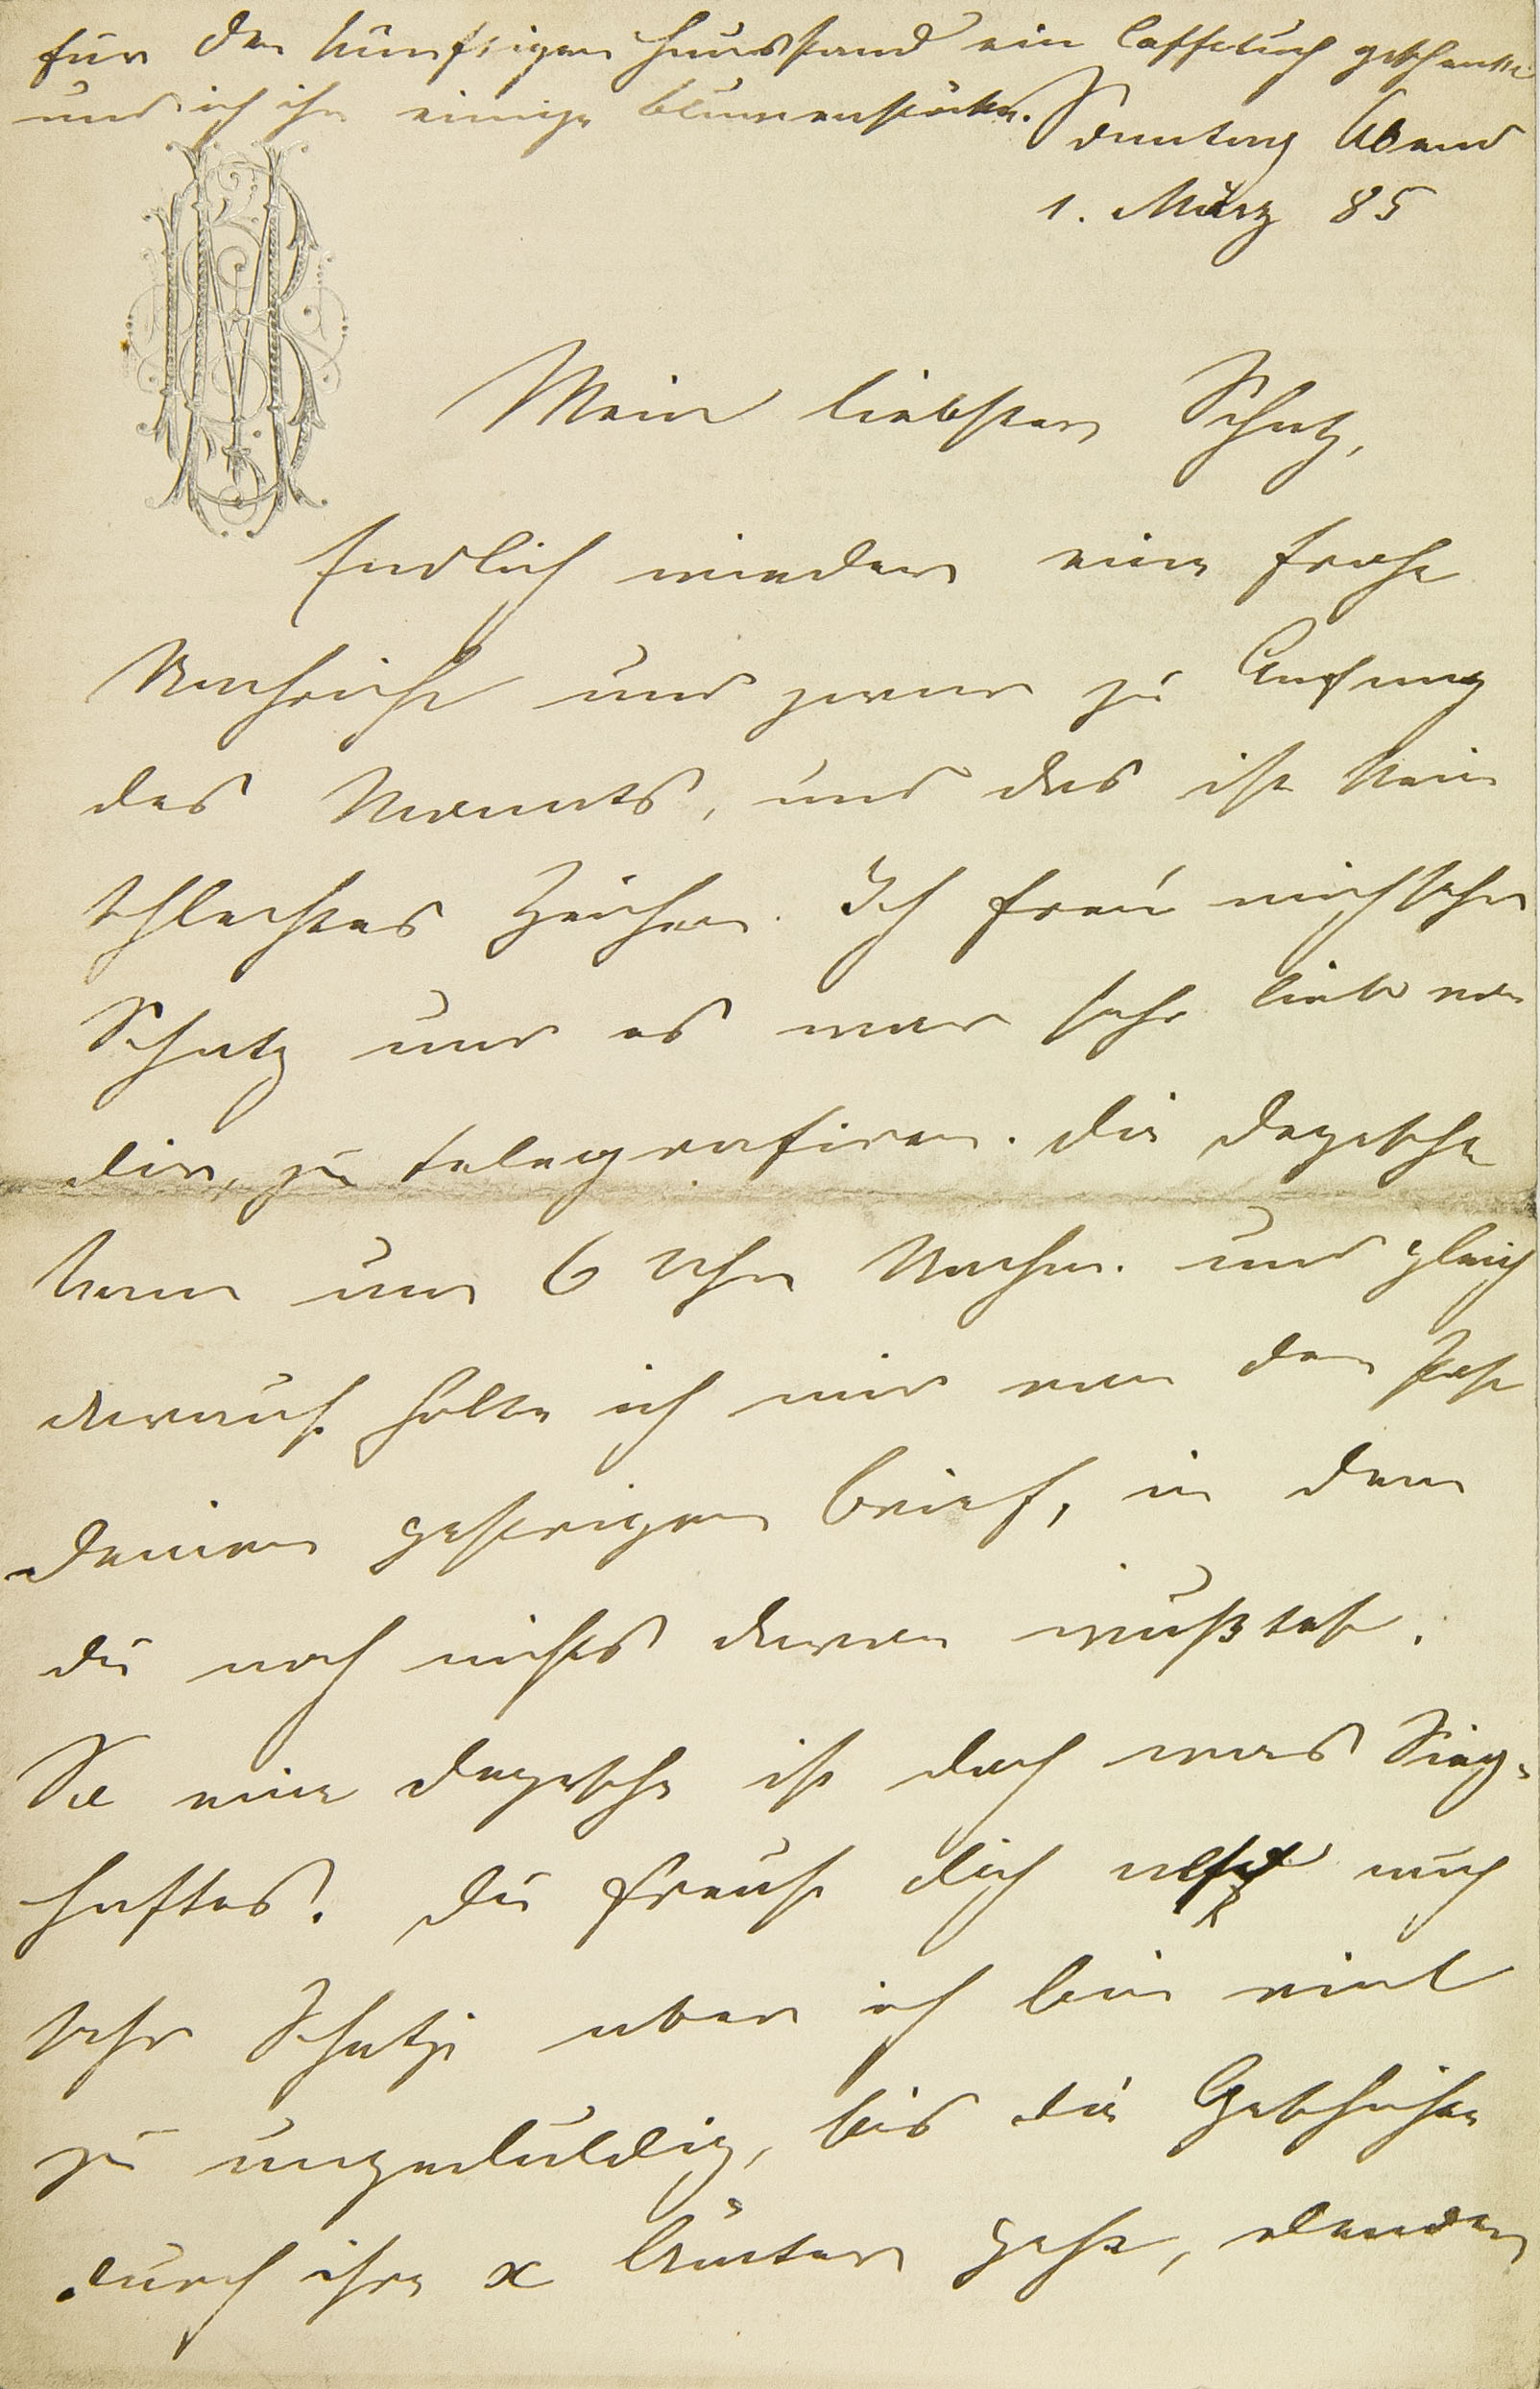 für den künftigen Hausstand ein Caffetuch geschenkt
und ich ihr einige Blumenstöcke.
Sonntag Abend
1. März 85
MB
Mein liebster Schatz,
Endlich wieder eine frohe
Nachricht und zwar zu Anfang
des Monats, und das ist kein
schlechtes Zeichen. Ich freu mich sehr
Schatz und es war sehr lieb von
dir, zu telegrafiren. Die Depesche
kam um 6 Uhr Nachm. und gleich
darauf holte ich mir von der Post
deinen gestrigen Brief, in dem
du noch nichts davon wußtest.
So eine Depesche ist doch was Sieg-
haftes! Du freust dich auch
sehr Schatzi aber ich bin viel
zu ungeduldig, bis die Geschichte
durch ihre x Ämter geht,